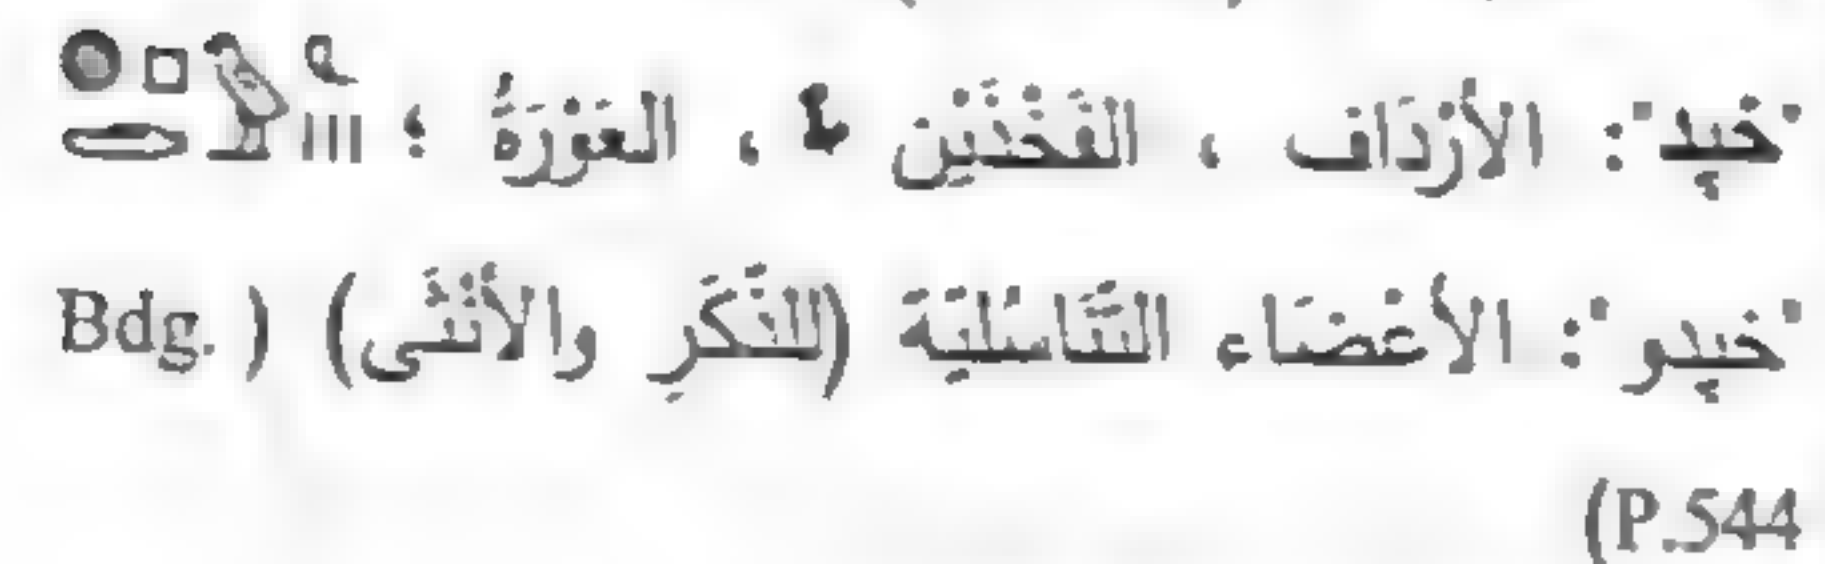 "خپد": الأَرْدَاف ، الفَخْذَيْن ، العَوْرَةُ ؛
"خپدو": الأَعْضَاء التَّنَاسُلِيَّة (للذَّكَرِ والأُنْثَى) (Bdg.
P.544)